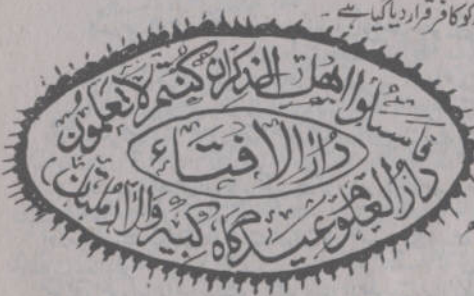 کو کافر قرار دیا گیا ہے ۔
فاسئلوا اهل الذکر ان کنتم لا تعلمون
دار الافتاء
دار العلوم عیدگاہ کبیر والا ملتان